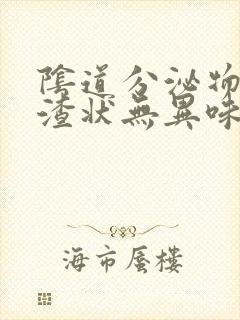 陰道分泌物
渣狀無異味
海市蜃樓